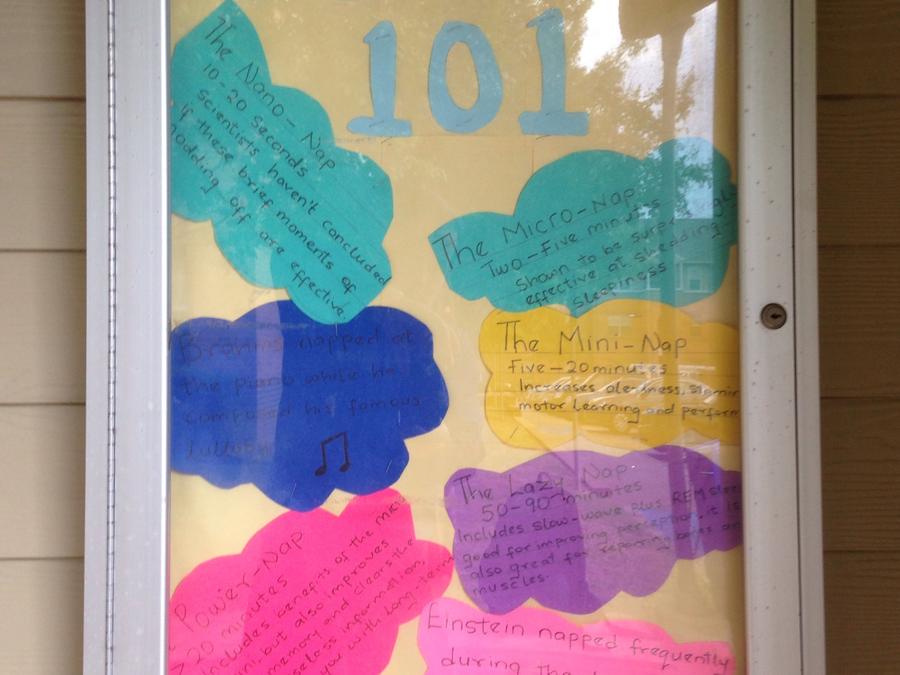 101
The Nano-Nap
10-20 Seconds
Scientists haven't concluded
if these brief moments of
nodding off are effective
The Micro-Nap
Two-Five minutes
Shown to be
effective at shedding
sleepiness
Brahms napped at
the piano while he
composed his famous
lullaby
The Mini-Nap
Five-20 minutes
Increases
motor learning and
The Lazy Nap
50-90-minutes
Includes slow-wave plus REM
good for improving perception, it is
also great for repairing bones
muscles.
Power-Nap
20 minutes
Includes benefits of the
but also improves
memory and clears the
information,
with long-term
Einstein napped frequently
during the